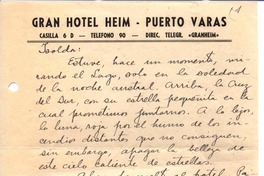 GRAN HOTEL HEIM - PUERTO VARAS
CASILLA 6 D - TELEFONO 90 - DIREC. TELEGR. «GRANHEIM»
Isolda:
Estuve, hace un momento, mi-
rando el Lago, solo en la soledad
de la noche austral. Arriba, la Cruz
del Sur, con su estrella pequeñita en la
cual prometimos juntarnos. A lo lejos,
la luna, roja por el humo de los in-
cendios distantes, que no consiguen,
sin embargo, apagar la belleza de
este cielo caliente de estrellas.
al hotel.